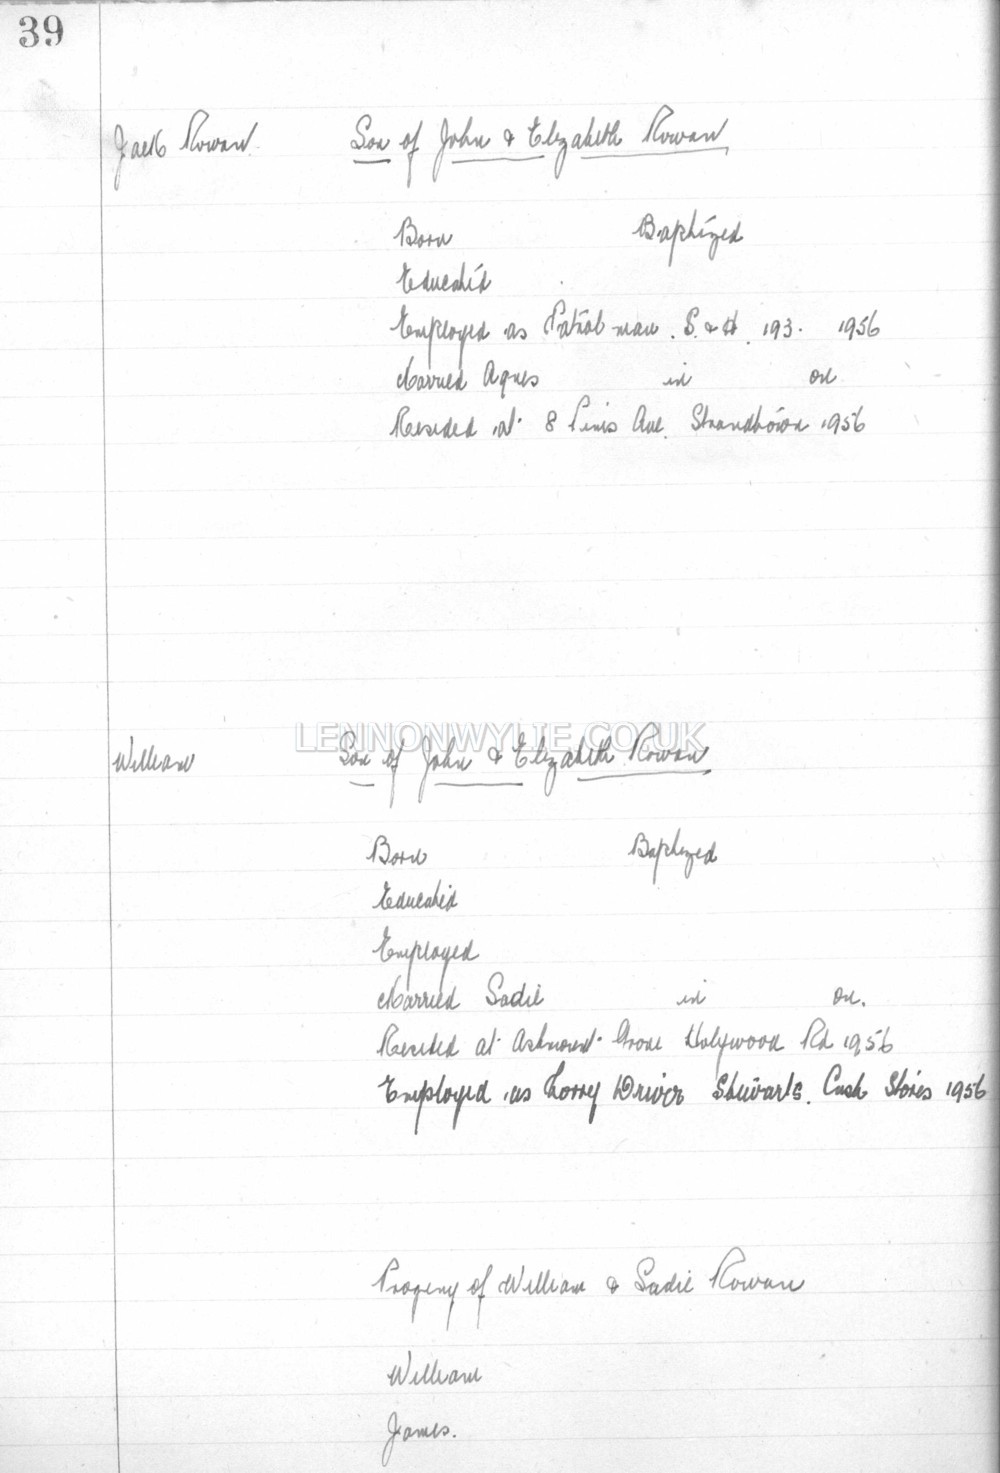 39
Jack Rowan Son of John & Elizabeth Rowan
Born Baptized
Educated
Employed as Patrol man. S. & H. 193. 1956
Married Agnes in on
Resided at 8 Ave. Strandtown 1956
LENNONWYLIE.CO.UK
William Son of John & Elizabeth Rowan
Born Baptized
Educated
Employed
Married Sadie in on.
Resided at Ashmount Grove Holywood Rd 1956
Employed as Lorry Driver Stewarts. Cash Stores 1956
Progeny of William & Sadie Rowan
William
James.